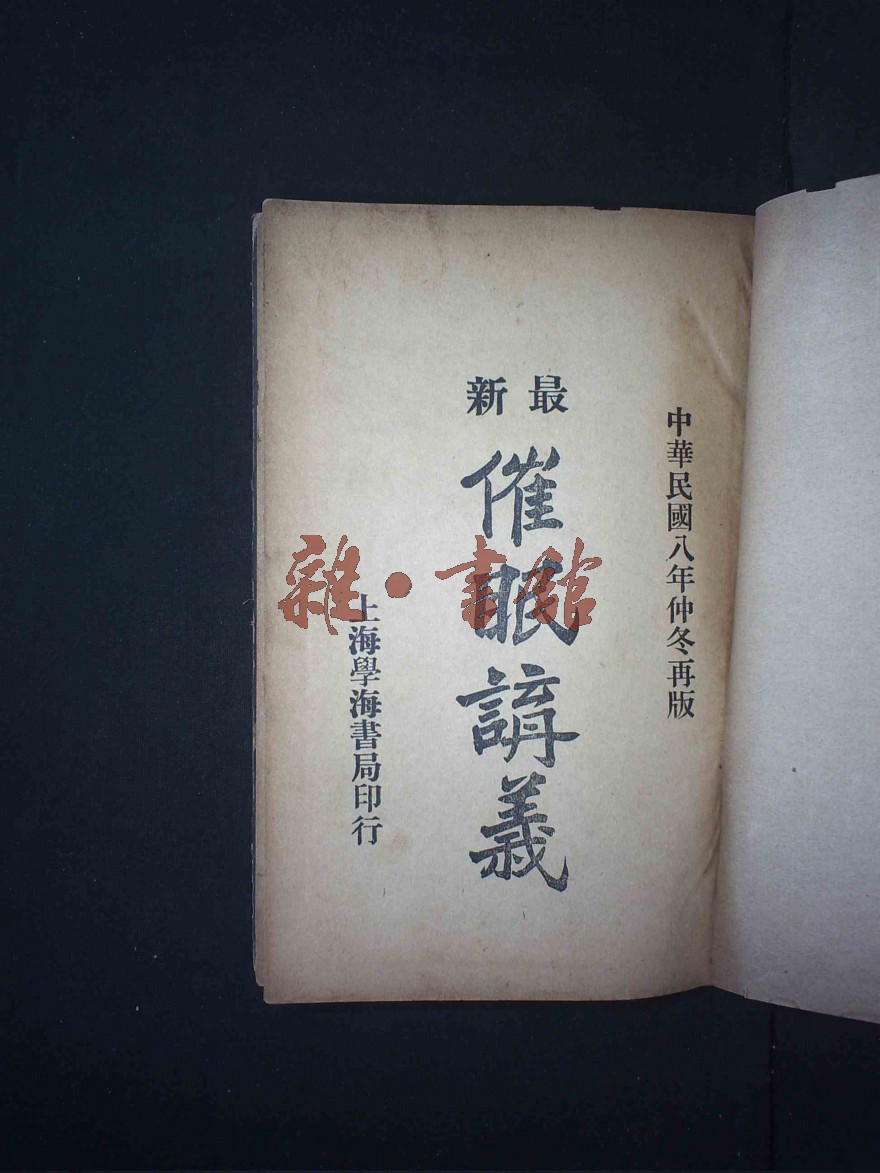 中華民國八年仲冬再版
最新
催眠講義
上海學海書局印行
雜·書館